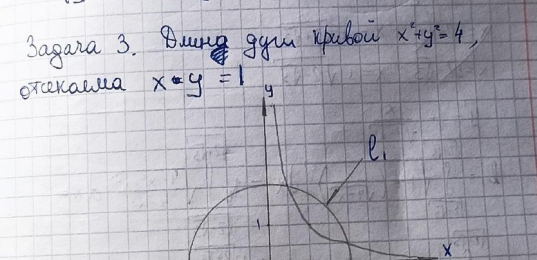 Задача 3. Длина дуги кривой x²+y²=4,
отсекаема x·y=1
y
l₁
1
x